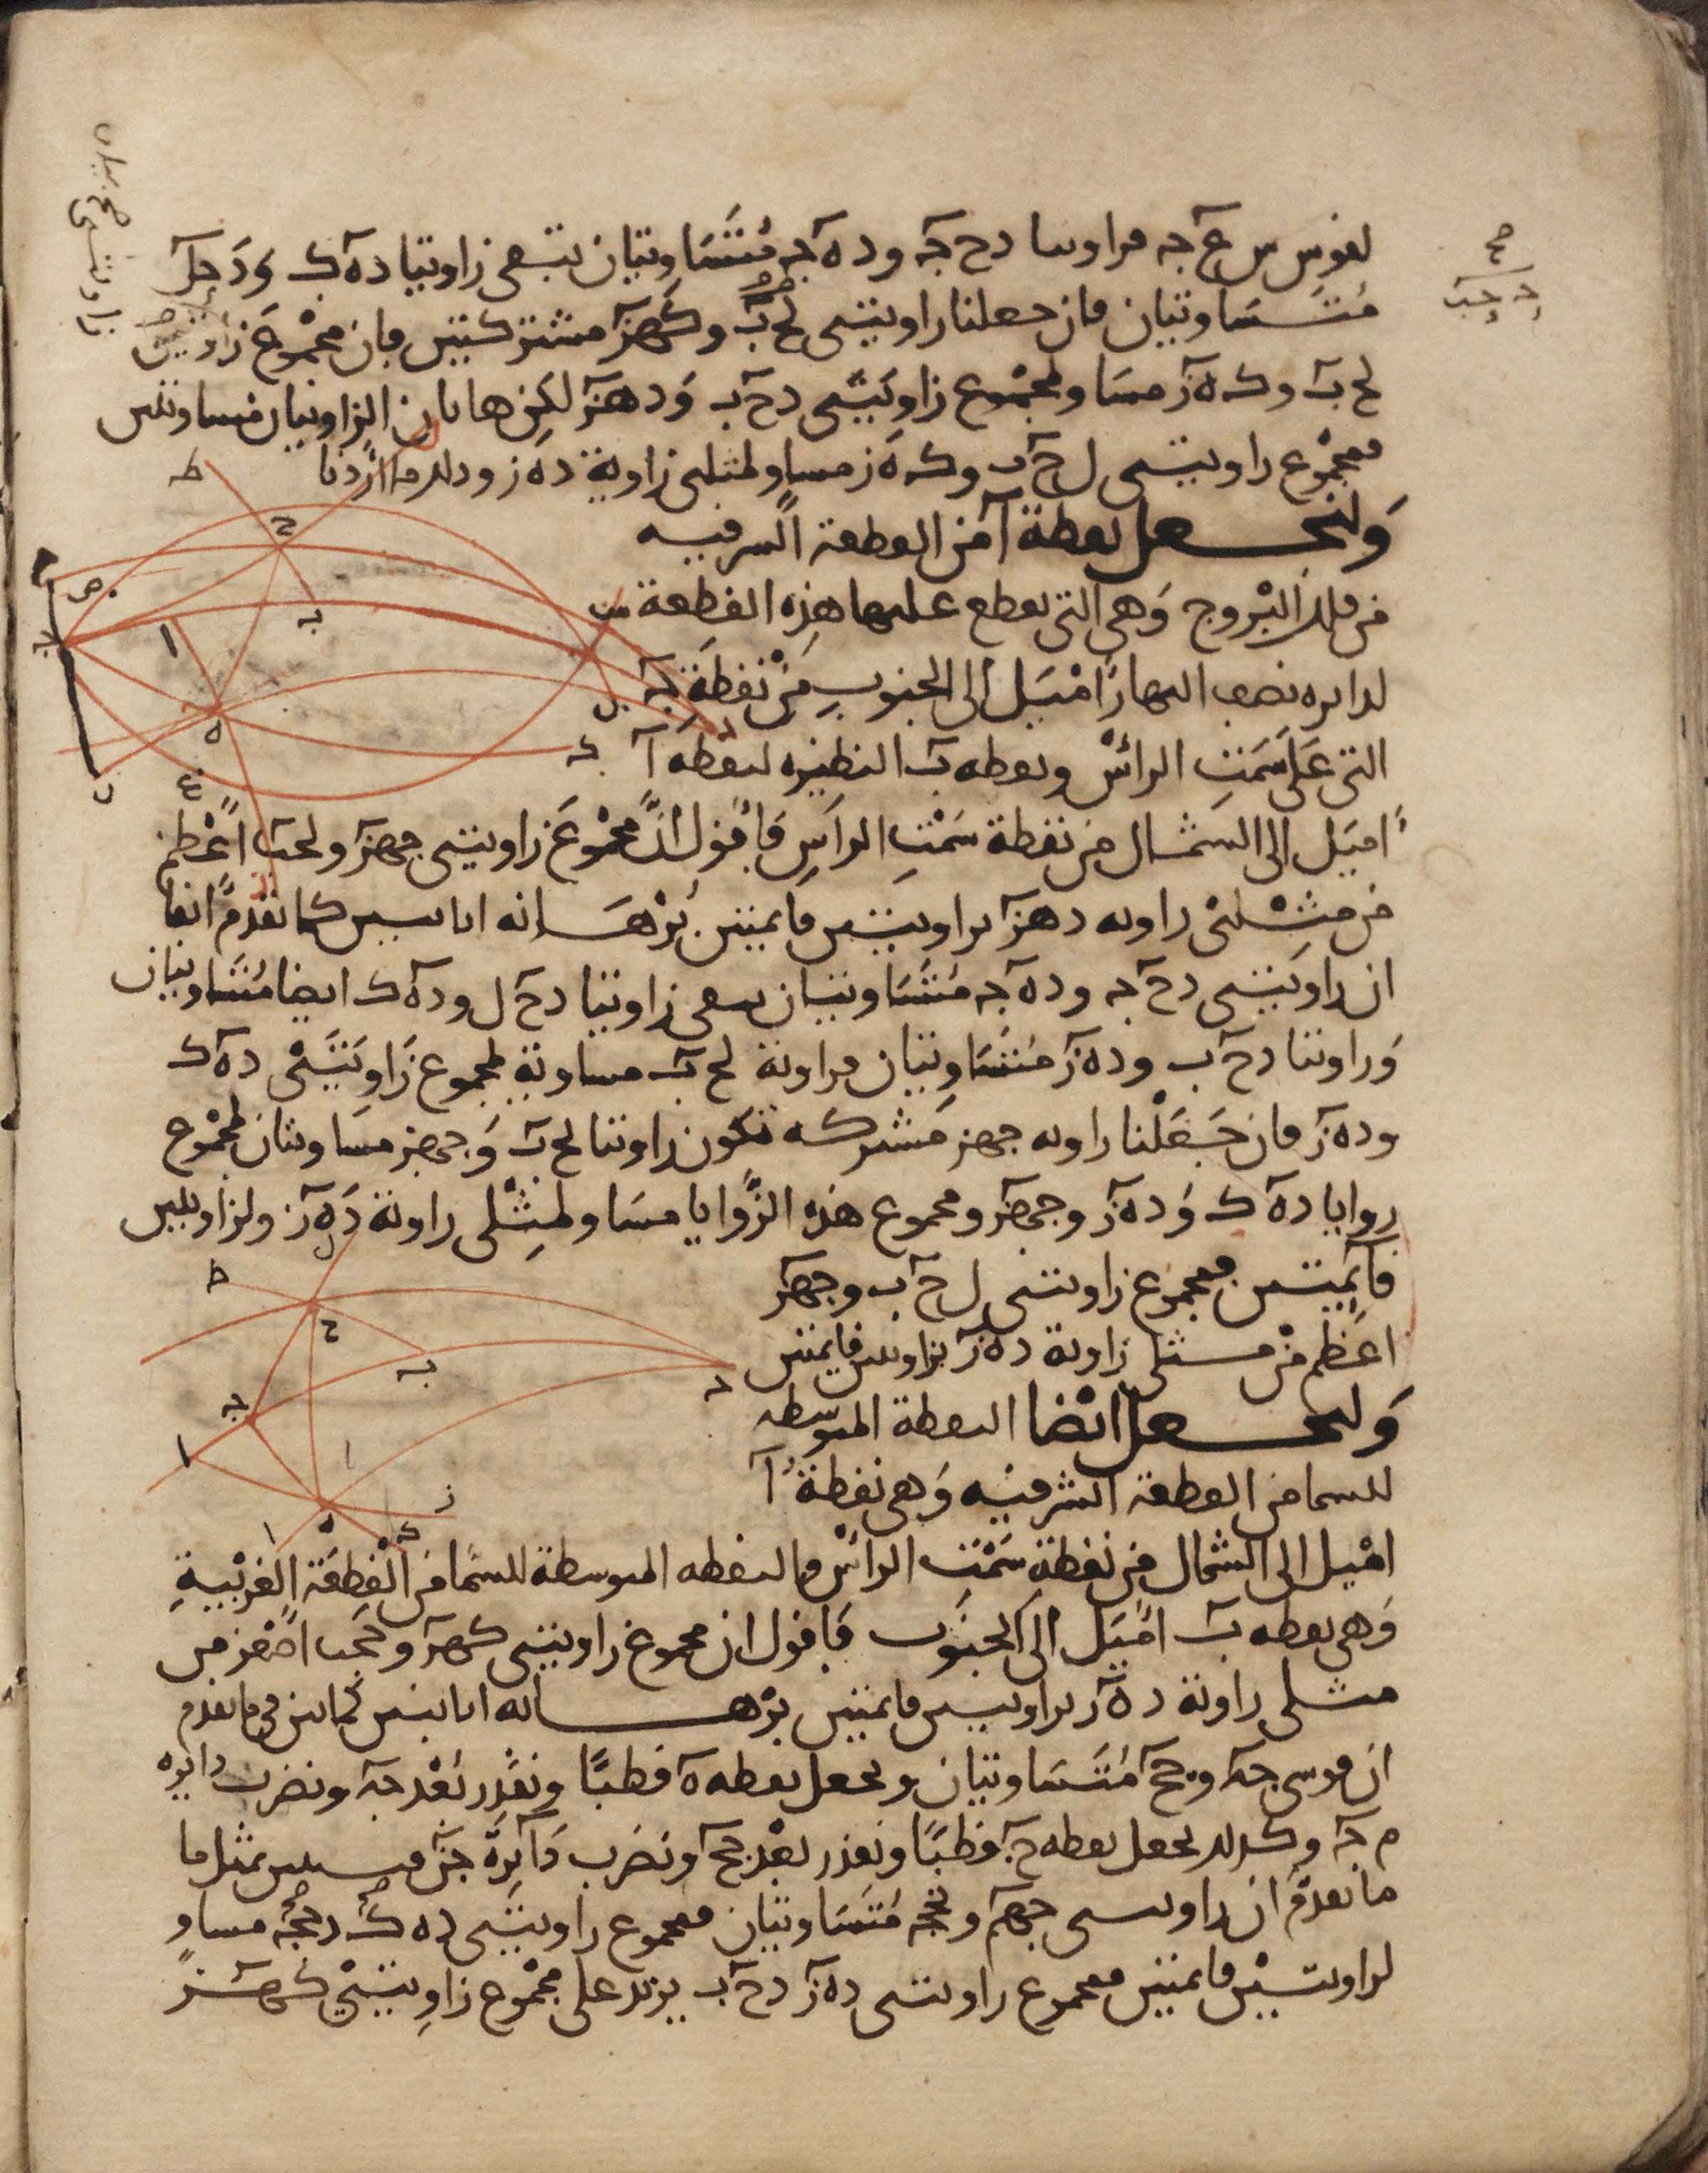 لقوس س ع جه فزاويتا دح جه و د ه جه متساويتان تبقى زاويتا د ه ك و د ح ل
متساويتان فان جعلنا زاويتى لح ب و كهز مشتركتين فان مجموع زاويتى
لح ب و ك ه ز مساو لمجموع زاويتى دح ب و دهز لكن هاتان الزاويتان متساويتين
فمجموع زاويتى ل ح ب و ك ه ز مساو لمثلى زاوية د ه ز وذلك ما اردنا
ولنجعل نقطة ا من القطعة الشرقيه
من فلك البروج وهى التى تقطع عليها هذه القطعة
لدايره نصف النهار اميل الى الجنوب من نقطة جه
التى على سمت الراس ونقطه ب النظيره لنقطه ا
اميل الى الشمال من نقطة سمت الراس فاقول ان مجموع زاويتى جهز ولحب اعظم
من مثلى زاويه دهز بزاويتين قايمتين برهانه انا نبين كما تقدم انفا
ان زاويتى دح جه و د ه جه متساويتان تبقى زاويتا دح ل و د ه ك ايضا متساويتان
وزاويتا دح ب و د ه ز متساويتان فزاوية لح ب مساوية لمجموع زاويتى د ه ك
و د ه ز فان جعلنا زاويه جهز مشتركه تكون زاويتا لح ب و جهز مساويتان لمجموع
زوايا د ه ك و د ه ز و جهز ومجموع هذه الزوايا مساو لمثلى زاوية د ه ز ولزاويتين
قايمتين فمجموع زاويتى ل ح ب و جهز
اعظم من مثلى زاوية د ه ز بزاويتين قايمتين
ولنجعل ايضا النقطة المتوسطه
للسما من القطعة الشرقيه وهى نقطة ا
اميل الى الشمال من نقطة سمت الراس والنقطه المتوسطة للسما من القطعة الغربية
وهى نقطه ب اميل الى الجنوب فاقول ان مجموع زاويتى كهز و لحب اصغر من
مثلى زاوية د ه ز بزاويتين قايمتين برهانه انا نبين كما تبين فيما تقدم
ان قوسى جه و جح متساويتان ونجعل نقطه ه قطبا وبقدر بعد جه ونضرب دايره
م جه وكذلك نجعل نقطه ح قطبا وبقدر بعد جح ونضرب دايرة جن فيتبين بمثل ما
ما تقدم ان زاويتى جهم و نحجه متساويتان فمجموع زاويتى د ه ك دحجه مساو
لزاويتين قايمتين فمجموع زاويتى د ه ز دح ب يزيد على مجموع زاويتى كهز